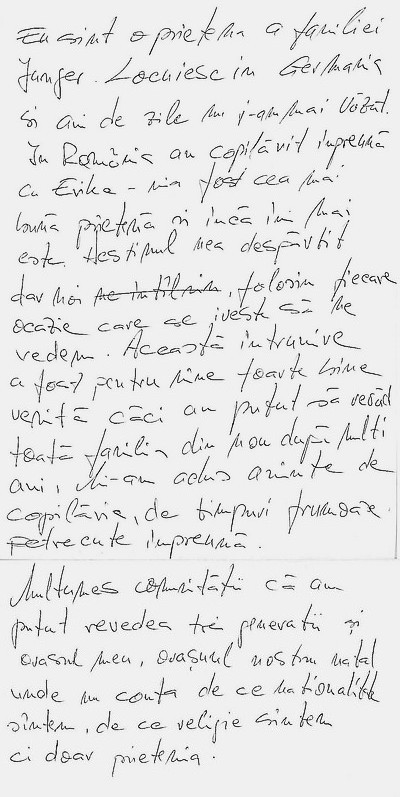 Eu sint o prietena a familiei
Junger. Locuiesc in Germania
si ani de zile nu i-am mai văzut.
In România am copilărit impreună
cu Erika - mia fost cea mai
bună prietenă si incă imi mai
este. Destinul nea despărtit
dar noi ne intîlnim, folosim fiecare
ocazie care se iveste să ne
vedem. Această intrunire
a fost pentru mine foarte bine
venită căci am putut să revăd
toată familia din nou după multi
ani, Mi-am adus aminte de
copilăria, de timpuri frumoase
petrecute impreună.
Multumesc comunității că am
putut revedea trei generatii și
orasul meu, orașul nostru natal
unde nu conta de ce nationalitate
sintem, de ce religie sintem
ci doar prietenia.